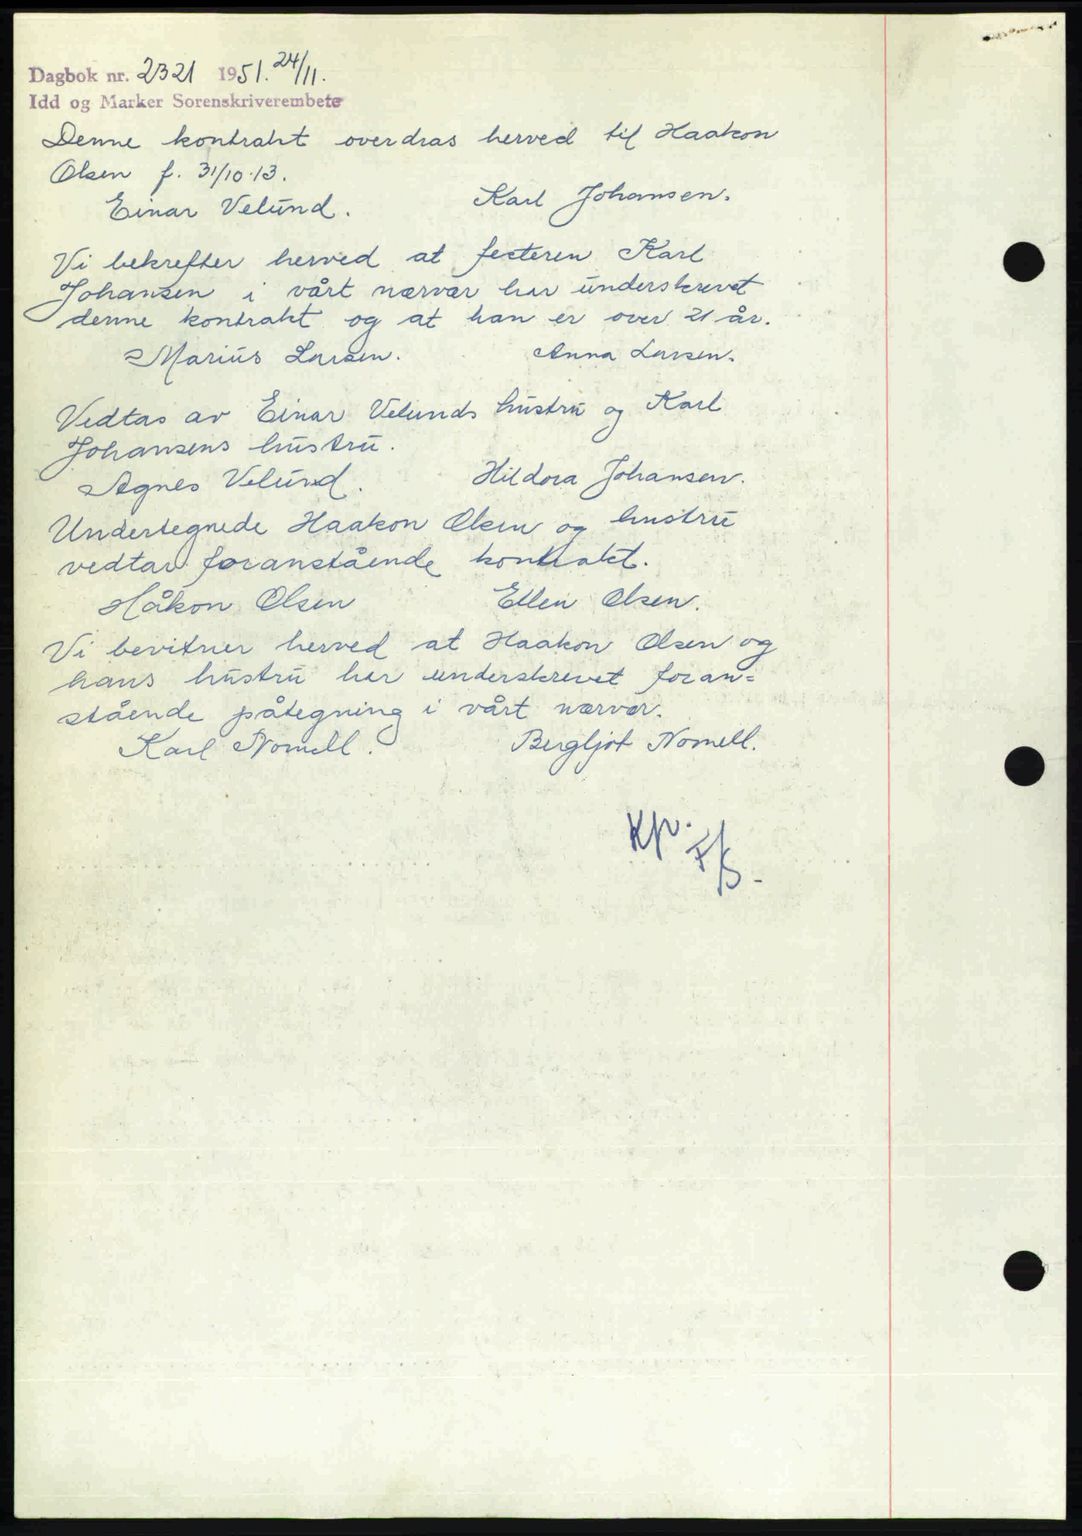 Dagbok nr. 2321 1951. 24/11.
Idd og Marker Sorenskriverembete
Denne kontrakt overdras herved til Haakon
Olsen f. 31/10-13.
Einar Velund. Karl Johansen.
Vi bekrefter herved at festeren Karl
Johansen i vårt nærvær har underskrevet
denne kontrakt og at han er over 21 år.
Marius Larsen. Anna Larsen.
Vedtas av Einar Velunds hustru og Karl
Johansens hustru.
Agnes Velund. Hildora Johansen.
Undertegnede Haakon Olsen og hustru
vedtar foranstående kontrakt.
Håkon Olsen Ellen Olsen.
Vi bevitner herved at Haakon Olsen og
hans hustru har underskrevet foran=
stående påtegning i vårt nærvær.
Karl Nomell. Bergljot Nomell.